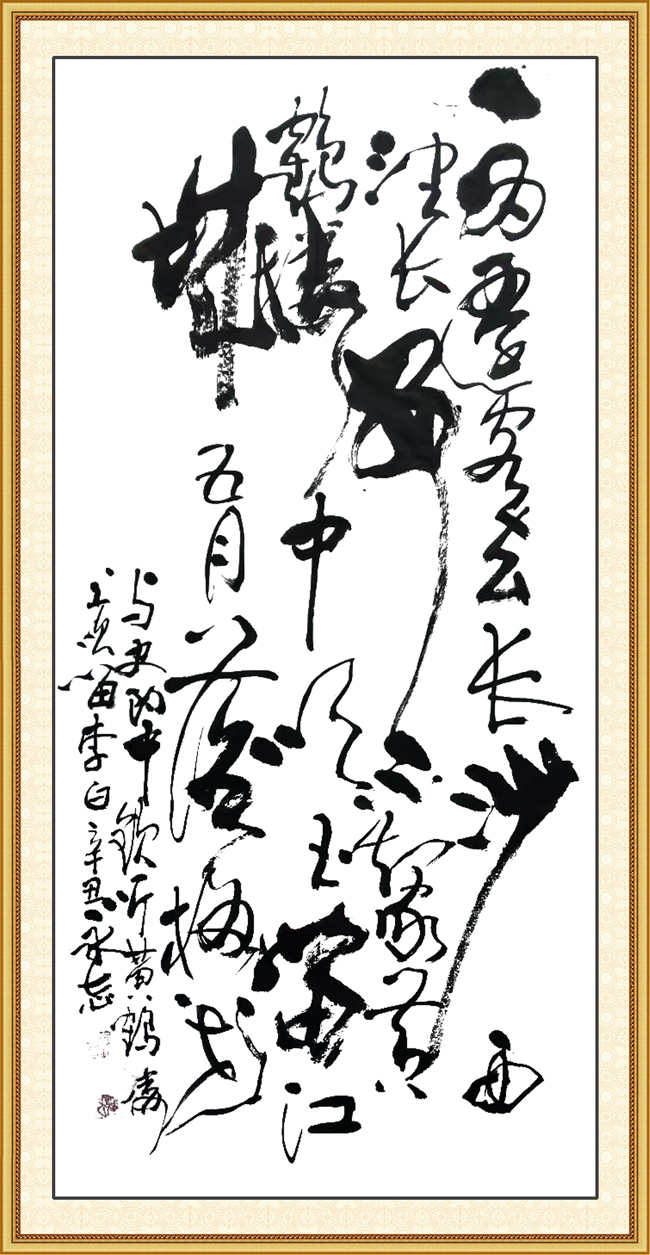 一为遷客去长沙西
望长安不见家黄
鹤楼中吹玉笛江
城五月落梅花
与史郎中钦听黄鹤楼
上吹笛李白辛丑永忘